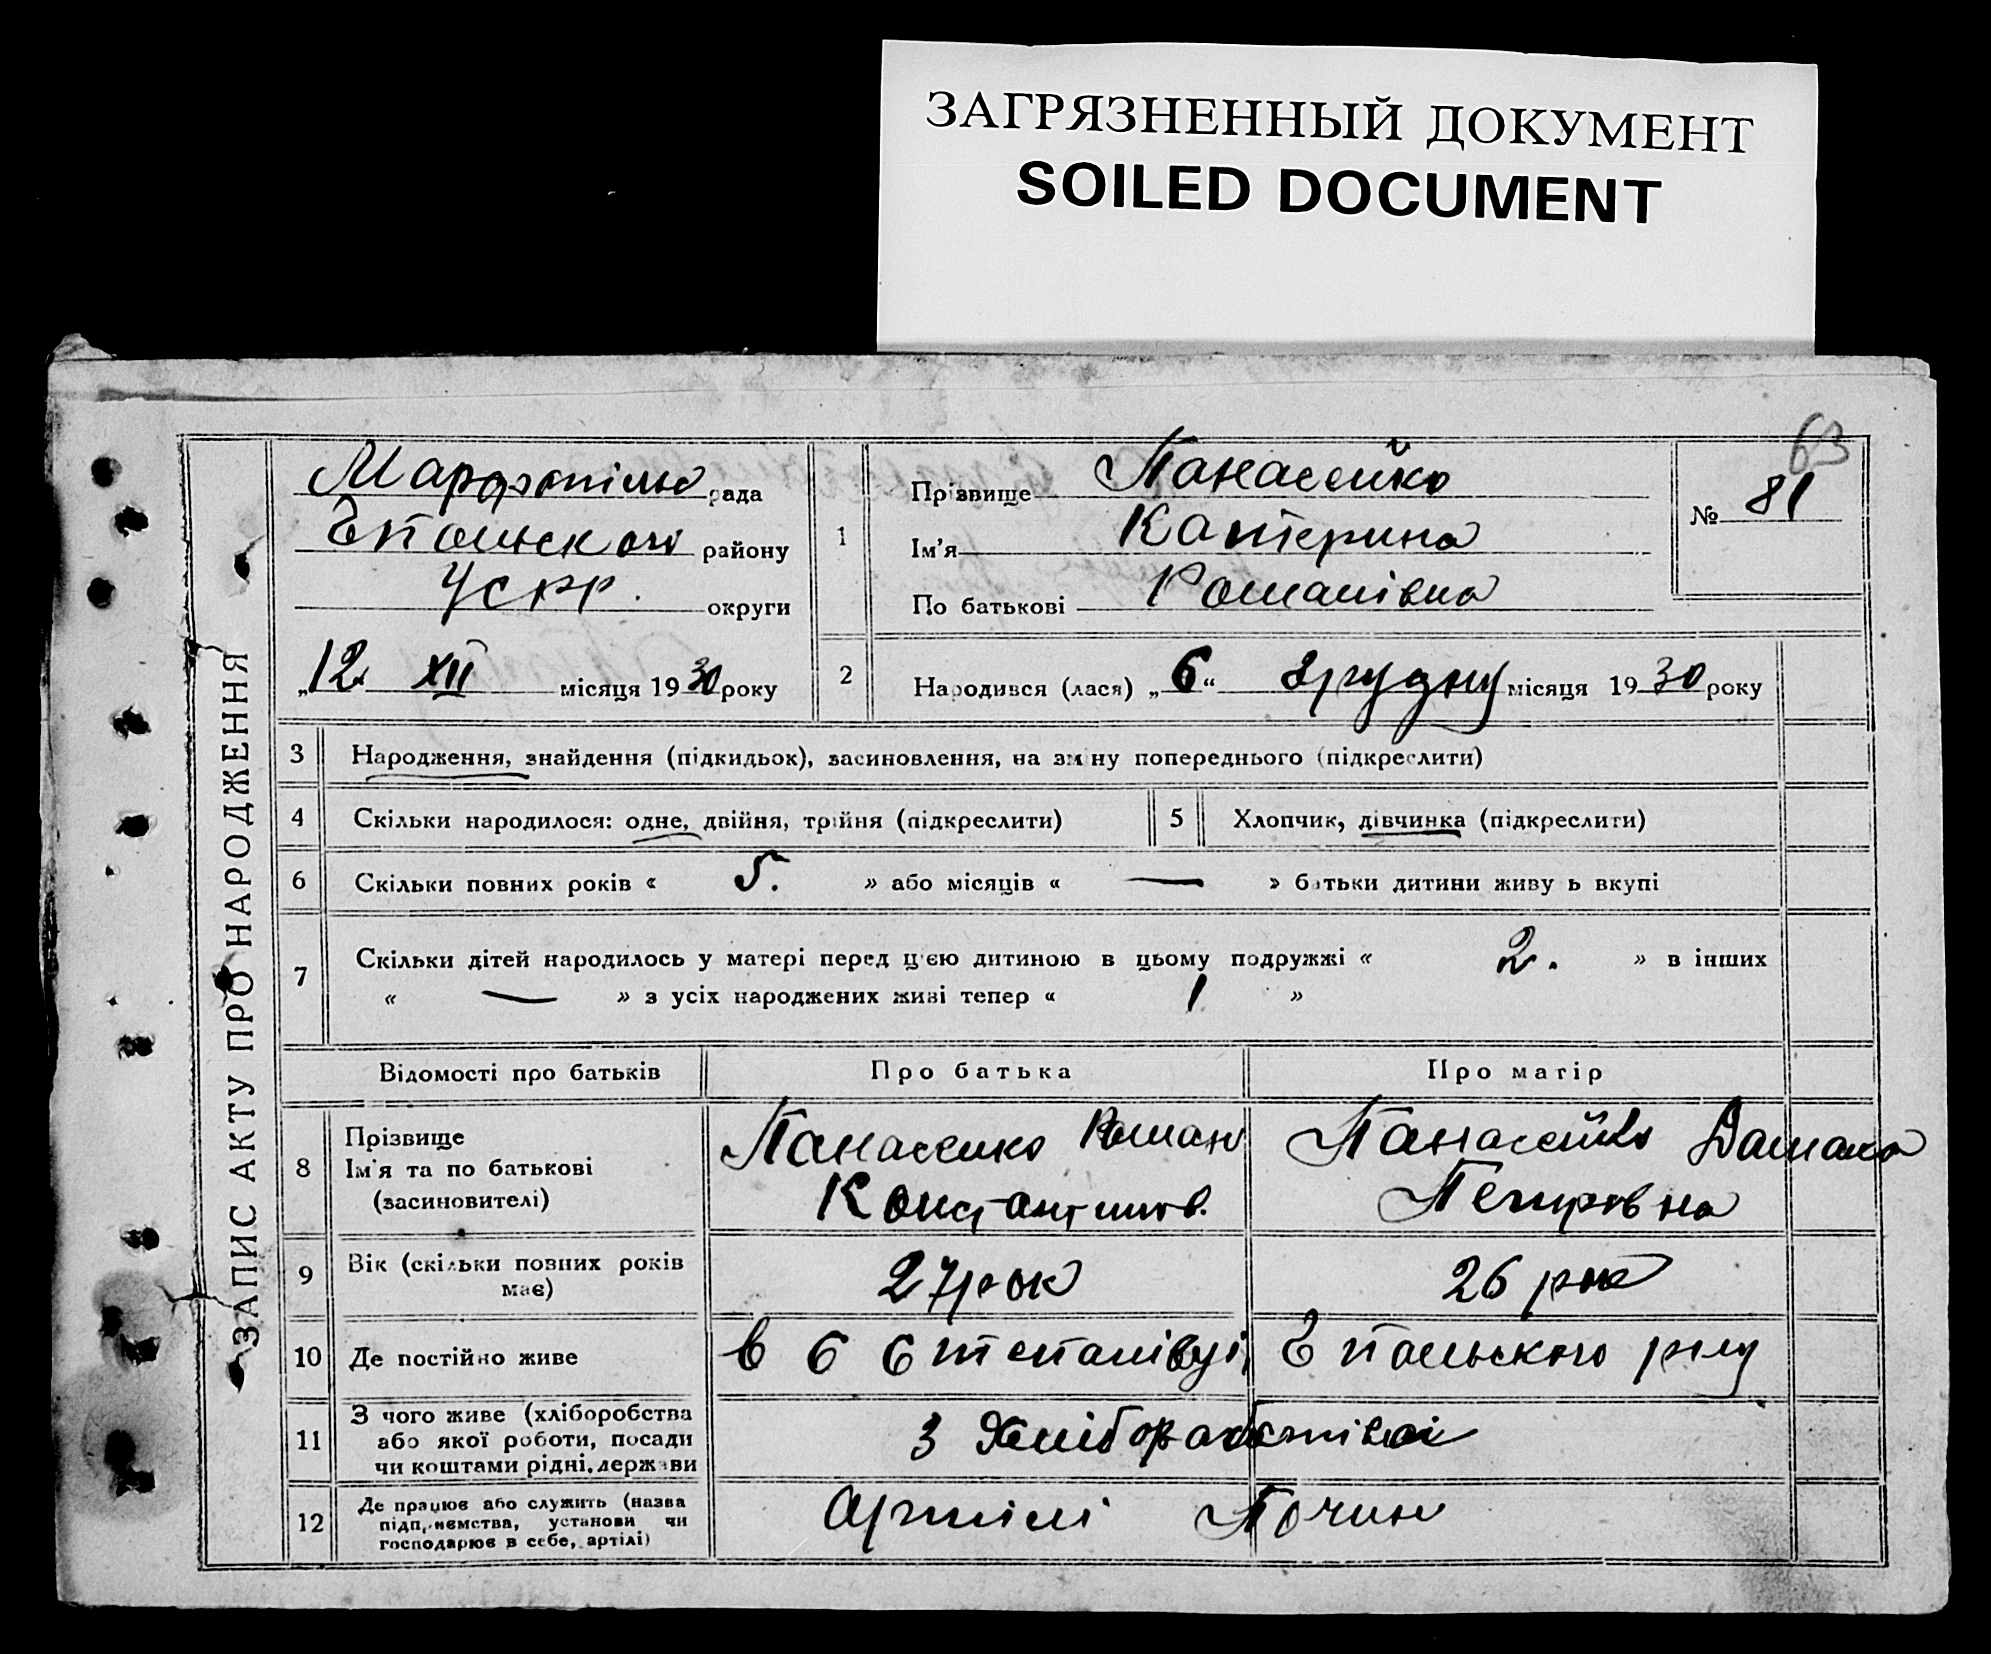 ЗАГРЯЗНЕННЫЙ ДОКУМЕНТ
SOILED DOCUMENT
63
ЗАПИС АКТУ ПРО НАРОДЖЕННЯ
рада
району
УСРР. округи
„12 XII місяця 1930 року
1
Прізвище Панасейко
Ім'я Катерина
По батькові Романівна
№ 81
2 Народився (лася) „6“ грудну місяця 1930 року
3 Народження, знайдення (підкидьок), засиновлення, на зміну попереднього (підкреслити)
4 Скільки народилося: одне, двійня, трійня (підкреслити)
5 Хлопчик, дівчинка (підкреслити)
6 Скільки повних років « 5. » або місяців « — » батьки дитини живуть вкупі
7 Скільки дітей народилось у матері перед цією дитиною в цьому подружжі « 2. » в інших
« — » з усіх народжених живі тепер « 1 »
Відомості про батьків Про батька Про матір
8 Прізвище
Ім'я та по батькові
(засиновителі)
Панасейко Роман
Константинов.
Панасейко
Петровна
9 Вік (скільки повних років
має)
27 рок
26 рок
10 Де постійно живе
в с Степанівці
11 З чого живе (хліборобства
або якої роботи, посади
чи коштами рідні, держави
З
12 Де працює або служить (назва
підприємства, установи чи
господарює в себе, артілі)
Артілі Почин